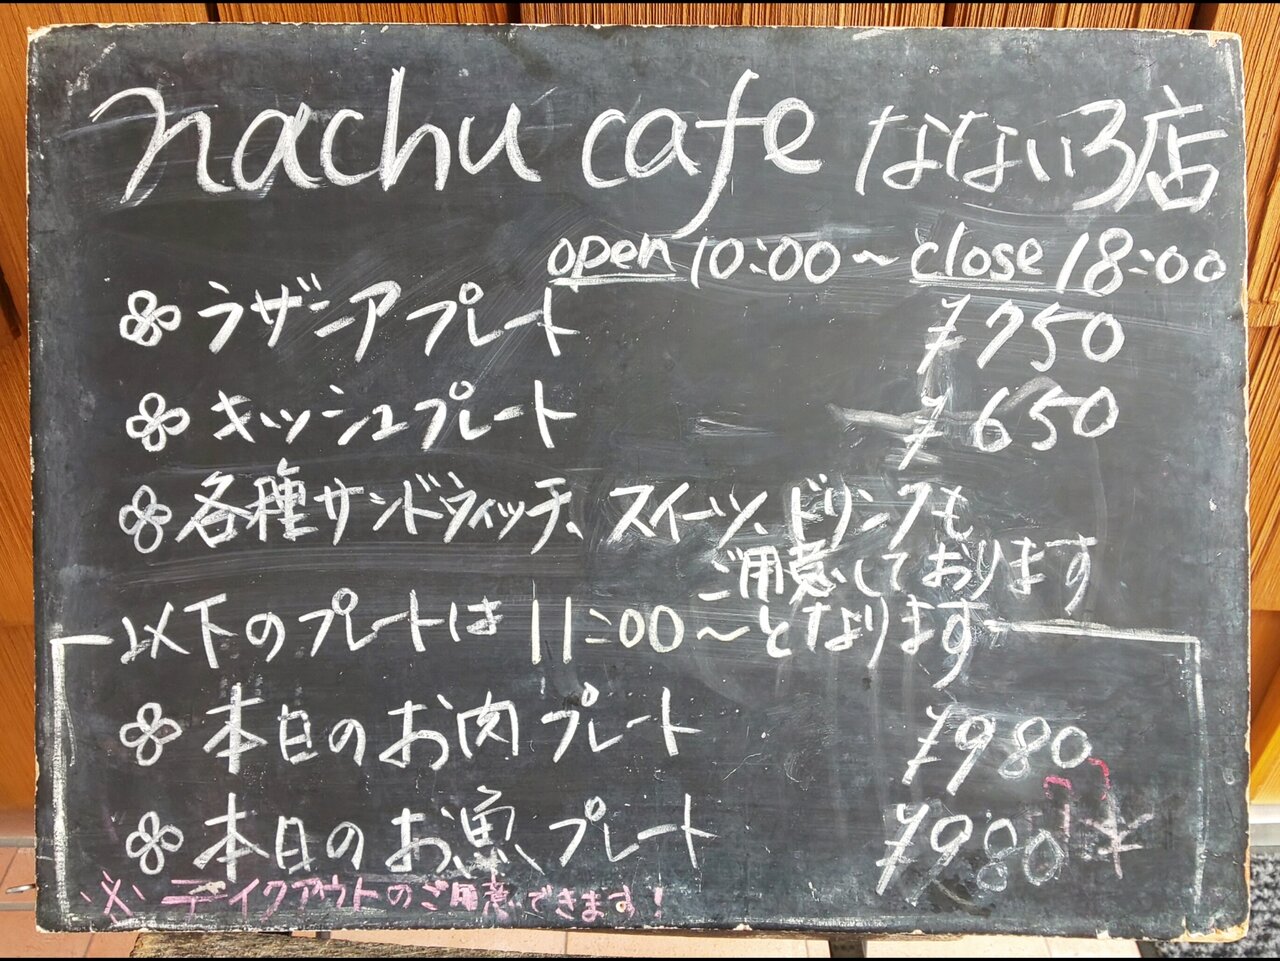 nachu cafe なないろ店
open 10:00〜close 18:00
ラザーニア プレート ¥750
キッシュプレート ¥650
各種サンドウィッチ、スイーツ、ドリンクも
ご用意しております
以下のプレートは 11:00〜となります
本日のお肉プレート ¥980
本日のお魚プレート ¥980
※テイクアウトのご用意できます!